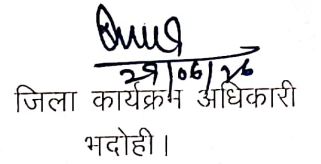 29/06/26
जिला कार्यक्रम अधिकारी
भदोही।